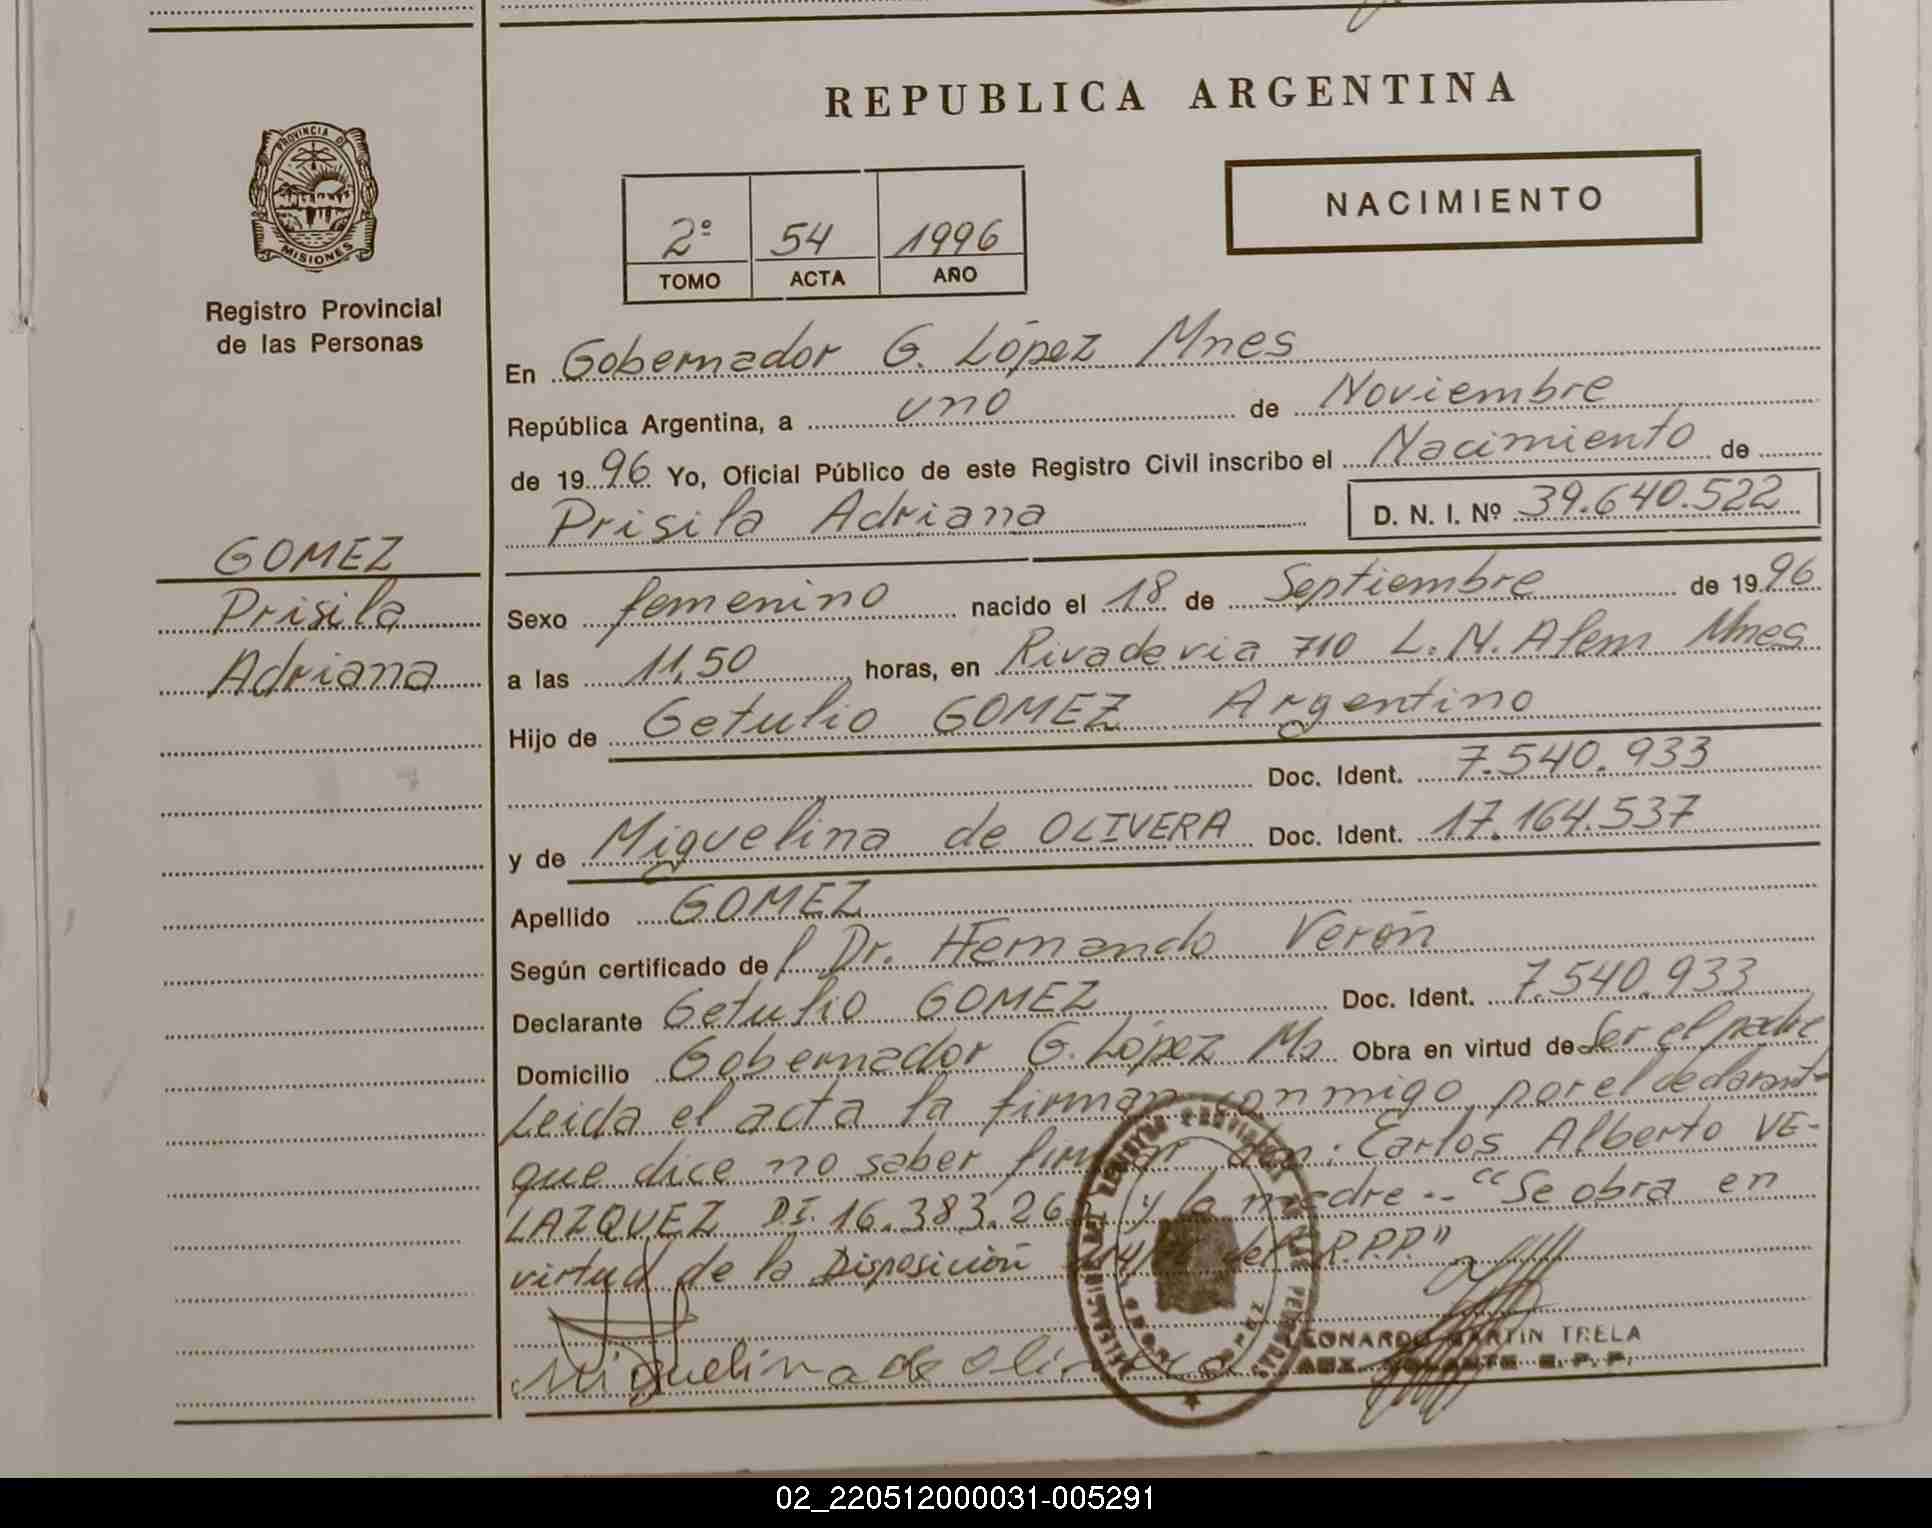 REPUBLICA ARGENTINA
PROVINCIA DE
MISIONES
Registro Provincial
de las Personas
NACIMIENTO
2º 54 1996
TOMO ACTA AÑO
En Gobernador G. López Mnes
República Argentina, a uno de Noviembre
de 1996 Yo, Oficial Público de este Registro Civil inscribo el Nacimiento de
Prisila Adriana D. N. I. Nº 39.640.522
GOMEZ
Prisila
Adriana
Sexo femenino nacido el 18 de Septiembre de 1996
a las 11,50 horas, en Rivadavia 710 L.N. Alem Mnes
Hijo de Getulio GOMEZ Argentino
Doc. Ident. 7.540.933
y de Miguelina de OLIVERA Doc. Ident. 17.164.537
Apellido GOMEZ
Según certificado del Dr. Hernando Verón
Declarante Getulio GOMEZ Doc. Ident. 7.540.933
Domicilio Gobernador G. López Ms Obra en virtud de Ser el padre
Leida el acta la firman conmigo, por el declarante
que dice no saber firmar don: Carlos Alberto VE-
LAZQUEZ DI. 16.383.26 y la madre -- "Se obra en
virtud de la Disposición del R.P.P."
Miguelina de Olivera
LEONARDO MARTIN TRELA
AUX. VOLANTE R.P.P.
02_220512000031-005291